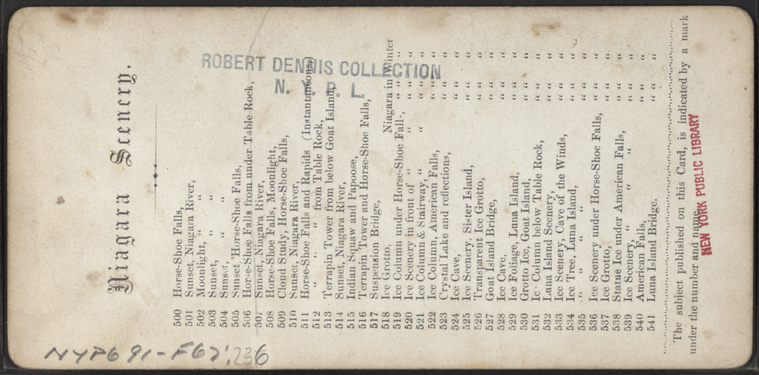 Niagara Scenery.
500 Horse-Shoe Falls,
501 Sunset, Niagara River,
502 Moonlight, " "
503 Sunset, " "
504 Sunset, " "
505 Sunset Horse-Shoe Falls,
506 Hor-e-Shoe Falls from under Table Rock,
507 Sunset, Niagara River,
508 Horse-Shoe Falls, Moonlight,
509 Cloud Study, Horse-Shoe Falls,
510 Sunset, Niagara River,
511 Horse-Shoe Falls and Rapids (Instantaneous)
512 " " " from Table Rock,
513 Terrapin Tower from below Goat Island,
514 Sunset, Niagara River,
515 Indian Squaw and Papoose,
516 Terrapin Tower and Horse-Shoe Falls,
517 Suspension Bridge,
518 Ice Grotto, Niagara in Winter
519 Ice Column under Horse-Shoe Fall-, " "
520 Ice Scenery in front of " " " "
521 Ice Column & Stairway, " " "
522 Ice Column, American Falls, " "
523 Crystal Lake and reflections, " "
524 Ice Cave, " "
525 Ice Scenery, Sister Island, " "
526 Transparent Ice Grotto, " "
527 Goat Island Bridge, " "
528 Ice Cave, " "
529 Ice Foliage, Luna Island, " "
530 Grotto Ice, Goat Island, " "
531 Ic Column below Table Rock, " "
532 Luna Island Scenery, " "
533 Ice Scenery, Cave of the Winds, " "
534 Ice Tree, Luna Island, " "
535 " " " " " "
536 Ice Scenery under Horse-Shoe Falls, " "
537 Ice Grotto, " "
538 Statue Ice under American Falls, " "
539 Ice Scenery, " " " "
540 American Falls, " "
541 Luna Island Bridge. " "
The subject published on this Card, is indicated by a mark
under the number and name.
ROBERT DENNIS COLLECTION
N. Y. P. L.
NEW YORK PUBLIC LIBRARY
NYPG91-F67:236